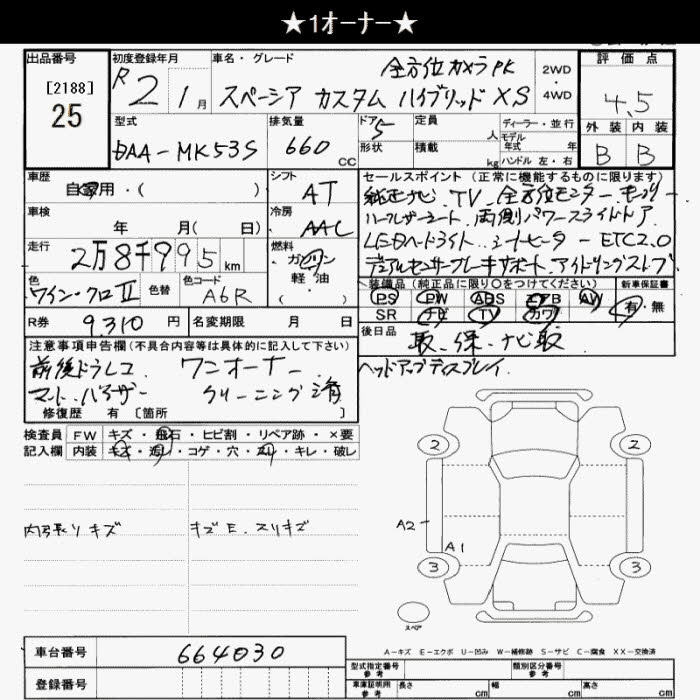 ★1オーナー★
出品番号
[2188]
25
初度登録年月
R2 1月
車名・グレード
全方位カメラPK
スペーシア カスタム ハイブリッド XS
2WD
・
4WD
評価点
4.5
外装 内装
B B
型式
DAA-MK53S
排気量
660 CC
ドア 5
形状
定員 人
積載 kg
ディーラー・並行
モデル
年式 年
ハンドル 左・右
車歴
自家用・( )
シフト
AT
車検
年 月( 日)
冷房
AAC
走行
2万8千995km
燃料
ガソリン
・
軽油
( )
色
ワイン・クロⅡ
色替
色コード
A6R
R券 9,310円
名変期限 月 日
セールスポイント(正常に機能するものに限ります)
純正ナビ、TV、全方位モニター
両側パワースライドドア
LEDヘッドライト、シートヒーター ETC2.0
デュアルセンサーブレーキサポート、アイドリングストップ
装備品(純正品に限り○をつけてください)
新車保証書
PS PW ABS エアB AW
有・無
SR ナビ TV カワ
後日品
取、保、ナビ取
ヘッドアップディスプレイ
注意事項申告欄(不具合内容等は具体的に記入して下さい)
前後ドラレコ ワンオーナー
マット、バイザー クリーニング済
修復歴 有[箇所 ]
検査員 FW キズ・飛石・ヒビ割・リペア跡・×要
記入欄 内装 キズ・汚れ・コゲ・穴・スリ・キレ・破レ
内張りキズ
キズE、スリキズ
2 2
A2
A1
3 3
スペア
A-キズ E-エクボ U-凹み W-補修跡 S-サビ C-腐食 XX-交換済
車台番号 664030
登録番号
型式指定番号
参考
類別区分番号
参考
車庫証明用
参考
長さ cm 幅 cm 高さ cm